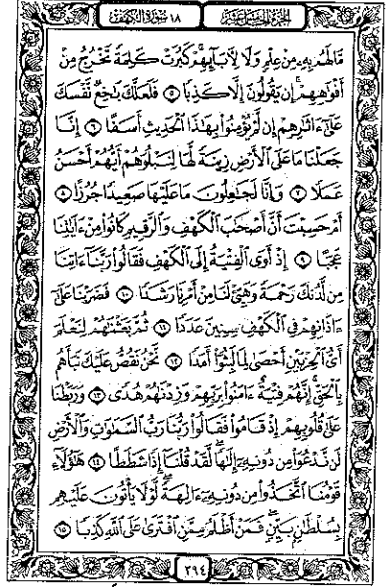 الجزء الخامس عشر ١٨ سورة الكهف
مَّا لَهُم بِهِۦ مِنْ عِلْمٍ وَلَا لِأٓبَآئِهِمْ ۚ كَبُرَتْ كَلِمَةً تَخْرُجُ مِنْ
أَفْوَٰهِهِمْ ۚ إِن يَقُولُونَ إِلَّا كَذِبًا ٥ فَلَعَلَّكَ بَٰخِعٌ نَّفْسَكَ
عَلَىٰٓ ءَاثَٰرِهِمْ إِن لَّمْ يُؤْمِنُوا۟ بِهَٰذَا ٱلْحَدِيثِ أَسَفًا ٦ إِنَّا
جَعَلْنَا مَا عَلَى ٱلْأَرْضِ زِينَةً لَّهَا لِنَبْلُوَهُمْ أَيُّهُمْ أَحْسَنُ
عَمَلًا ٧ وَإِنَّا لَجَٰعِلُونَ مَا عَلَيْهَا صَعِيدًا جُرُزًا ٨
أَمْ حَسِبْتَ أَنَّ أَصْحَٰبَ ٱلْكَهْفِ وَٱلرَّقِيمِ كَانُوا۟ مِنْ ءَايَٰتِنَا
عَجَبًا ٩ إِذْ أَوَى ٱلْفِتْيَةُ إِلَى ٱلْكَهْفِ فَقَالُوا۟ رَبَّنَآ ءَاتِنَا
مِن لَّدُنكَ رَحْمَةً وَهَيِّئْ لَنَا مِنْ أَمْرِنَا رَشَدًا ١٠ فَضَرَبْنَا عَلَىٰٓ
ءَاذَانِهِمْ فِى ٱلْكَهْفِ سِنِينَ عَدَدًا ١١ ثُمَّ بَعَثْنَٰهُمْ لِنَعْلَمَ
أَىُّ ٱلْحِزْبَيْنِ أَحْصَىٰ لِمَا لَبِثُوٓا۟ أَمَدًا ١٢ نَّحْنُ نَقُصُّ عَلَيْكَ نَبَأَهُم
بِٱلْحَقِّ ۚ إِنَّهُمْ فِتْيَةٌ ءَامَنُوا۟ بِرَبِّهِمْ وَزِدْنَٰهُمْ هُدًى ١٣ وَرَبَطْنَا
عَلَىٰ قُلُوبِهِمْ إِذْ قَامُوا۟ فَقَالُوا۟ رَبُّنَا رَبُّ ٱلسَّمَٰوَٰتِ وَٱلْأَرْضِ
لَن نَّدْعُوَا۟ مِن دُونِهِۦٓ إِلَٰهًا ۖ لَّقَدْ قُلْنَآ إِذًا شَطَطًا ١٤ هَٰٓؤُلَآءِ
قَوْمُنَا ٱتَّخَذُوا۟ مِن دُونِهِۦٓ ءَالِهَةً ۖ لَّوْلَا يَأْتُونَ عَلَيْهِم
بِسُلْطَٰنٍۭ بَيِّنٍ ۖ فَمَنْ أَظْلَمُ مِمَّنِ ٱفْتَرَىٰ عَلَى ٱللَّهِ كَذِبًا ١٥
٢٩٤